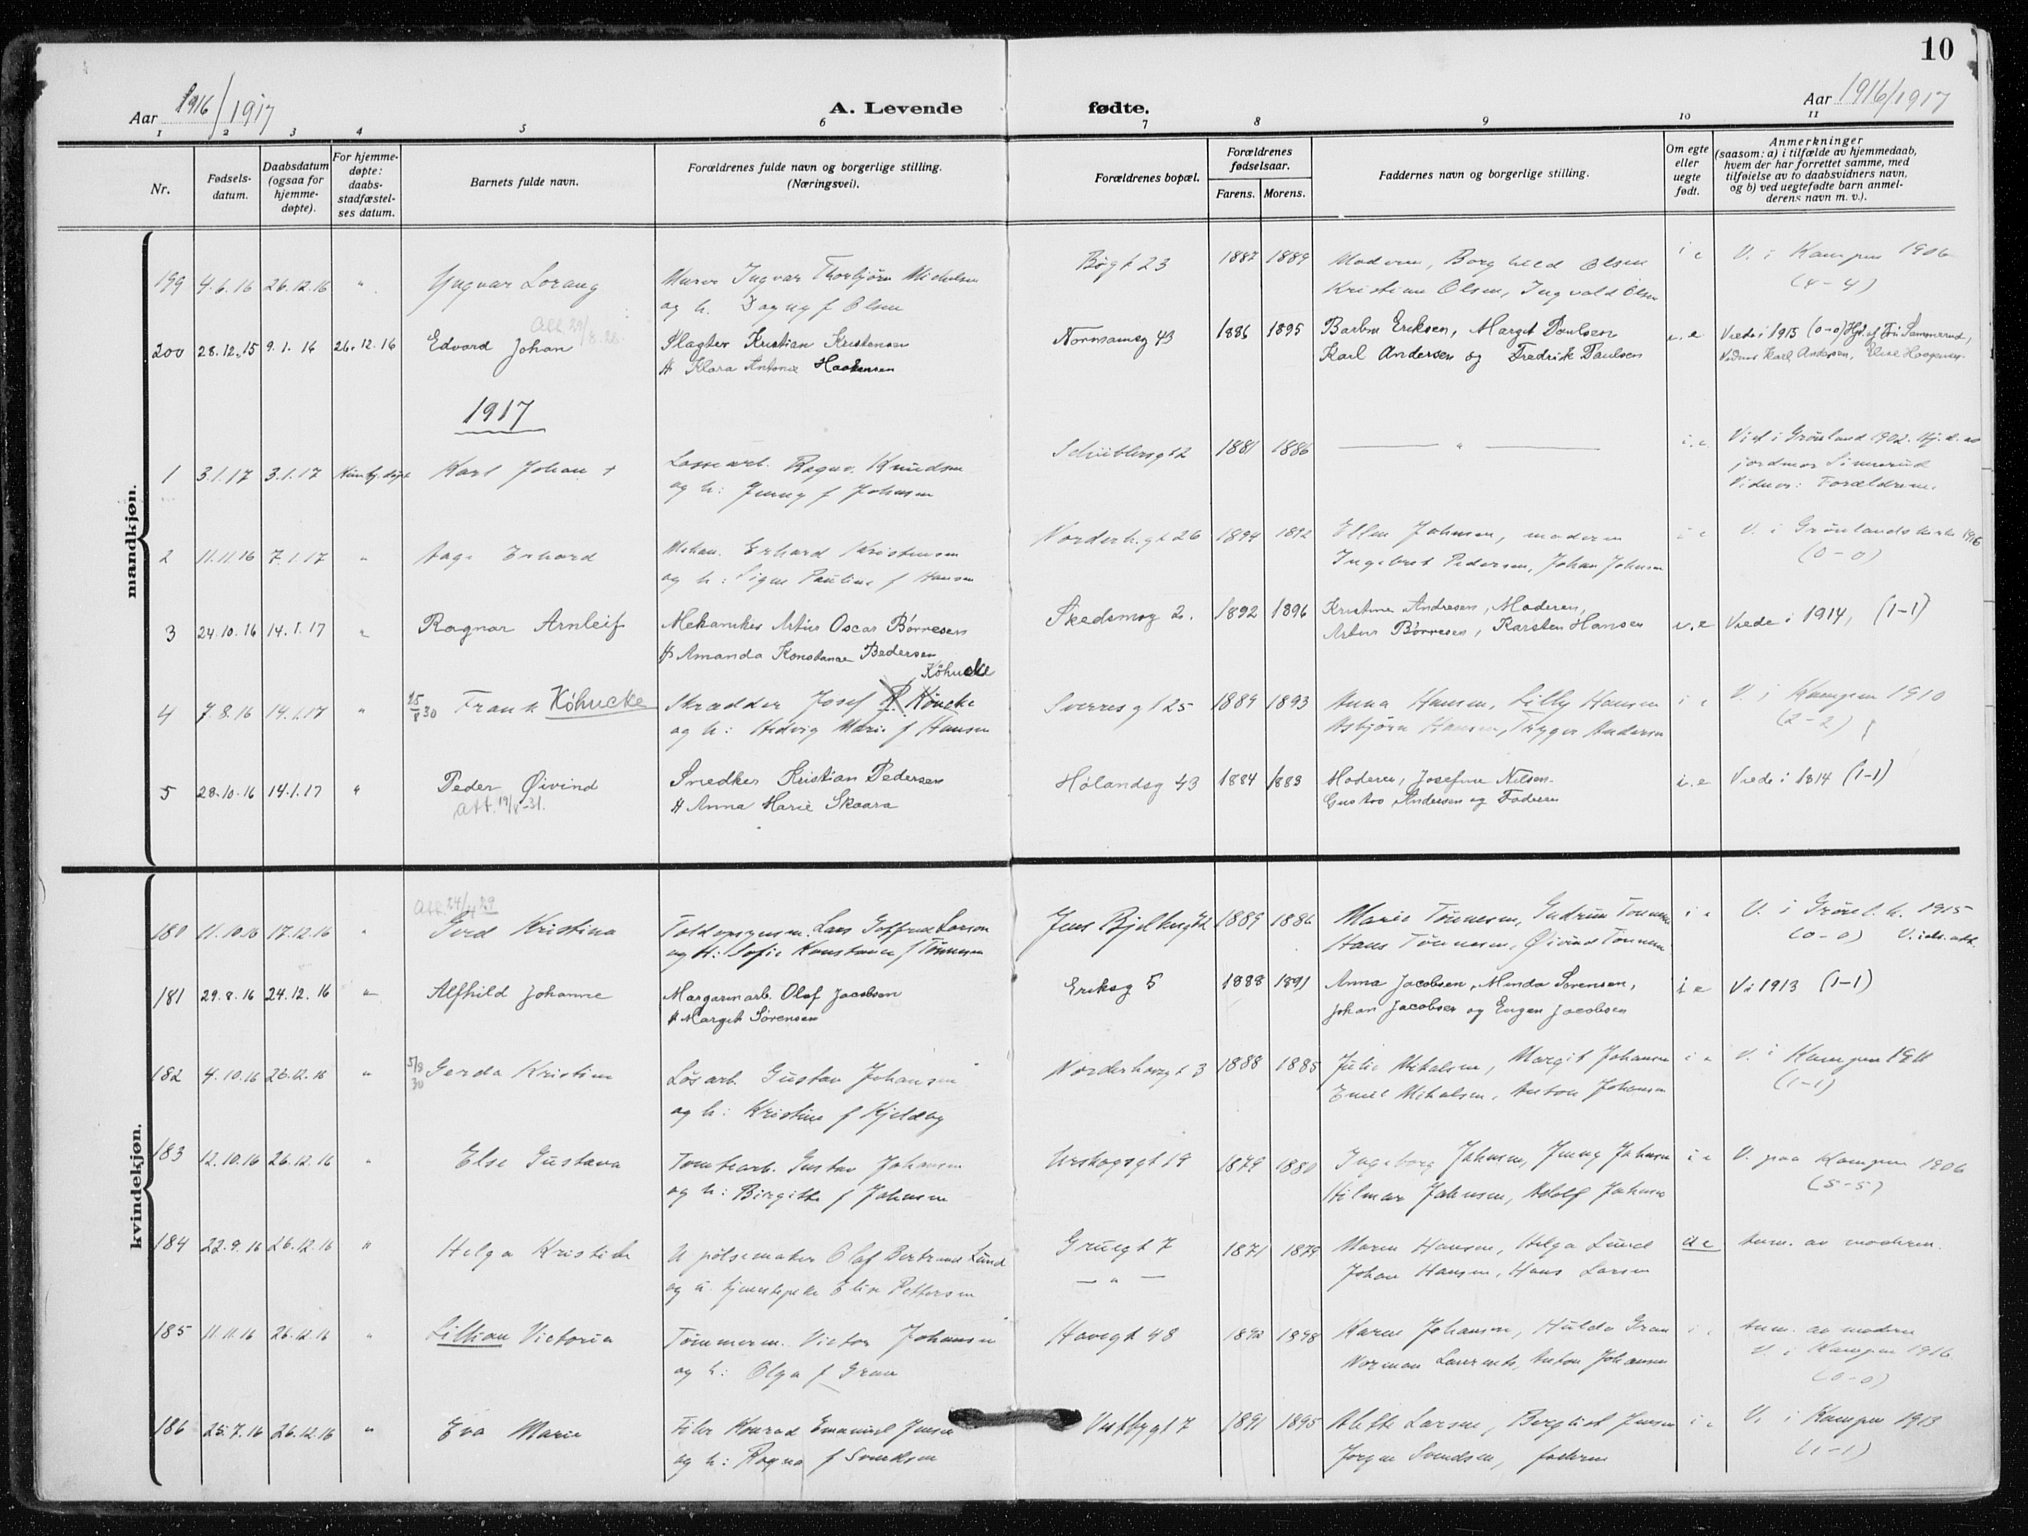 10
Aar 1916/1917
A. Levende fødte.
Aar 1916/1917
1 2 3 4 5 6 7 8 9 10 11
Nr.
Fødsels-
datum.
Daabsdatum
(ogsaa for
hjemme-
døpte).
For hjemme-
døpte:
daabs-
stadfæstel-
ses datum.
Barnets fulde navn.
Forældrenes fulde navn og borgerlige stilling.
(Næringsvei).
Forældrenes bopæl.
Forældrenes
fødselsaar.
Farens. Morens.
Faddernes navn og borgerlige stilling.
Om egte
eller
uegte
født.
Anmerkninger
(saasom: a) i tilfælde av hjemmedaab,
hvem der har forrettet samme, med
tilføielse av to daabsvidners navn,
og b) ved uegtefødte barn anmel-
derens navn m. v.).
mandkjøn.
199 4.6.16 26.12.16 " Yngvar Lorang Murer Ingvar Thorbjørn Michelsen Bøgt 23 1887 1889 Moderen, Borghild Olsen i e V. i Kampen 1906
og h. Dagny f Olsen Kristian Olsen, Ingvald Olsen (4-4)
Att. 29/8.28.
200 28.12.15 9.1.16 26.12.16 Edvard Johan Slagter Kristian Kristensen Normannsg 43 1886 1895 Barbra Eriksen, Margit Paulsen u.e Viede i 1915 (0-0)
H Klara Antonie Haakensen Karl Andersen og Fredrik Paulsen Vidner Karl Andersen, Elise
1917
1 3.1.17 3.1.17 Karl Johan + Knudsen Schüblersgt 2 1881 1886 — " — i.e Viet i Grønland 1902. Hj. d. av
og h: Jenny f Johnsen jordmor Simerud
Vidner: Forældrene.
2 11.11.16 7.1.17 " Aage Erhard Mekan. Erhard Kristensen Norderh.gt 26 1894 1892 Ellen Johnsen, moderen i e V. i Grønlands kirke 1916
og h: Signe Pauline f Hansen Ingebret Pedersen, Johan Johnsen (0-0)
3 24.10.16 14.1.17 " Ragnar Arnleif Mekaniker Artur Oscar Børresen Skedsmog 2. 1892 1896 Kristine Andresen, Moderen, u.e Viede i 1914, (1-1)
H Amanda Konstanse Pedersen Artur Børresen, Karsten Hansen
Köhncke
4 7.8.16 14.1.17 " 25/8 30 Frank Köhncke Skrædder Josef P. Köncke Sverresgt 25 1889 1893 Anna Hansen, Lilly Hansen i e V. i Kampen 1910
og h: Hedvig Marie f Hansen Asbjørn Hansen, Trygve Andersen (2-2)
5 28.10.16 14.1.17 " Peder Øivind Snedker Kristian Pedersen Hølandsg 43 1884 1883 Moderen, Josefine Nilsen i.e Viede i 1914 (1-1)
Att. 19/8-31. H Anna Marie Skaara Gustav Andersen og Faderen
kvindekjøn.
Att. 24/4 29
180 11.10.16 17.12.16 " Gerd Kristina Toldopsynsm. Lars Larson Jens Bjelkesgt 1889 1886 Marie Tønnesen, Gudrun Tønnesen i e V. i Grønl. k. 1915
og H: Sofie Konstance f Tønnesen Hans Tønnesen, Øivind Tønnesen (0-0) V
181 29.8.16 24.12.16 " Alfhild Johanne Margarinarb. Olaf Jacobsen Eriksg 5 1888 1891 Anna Jacobsen, Minda Sørensen, i e V i 1913 (1-1)
H Margit Sørensen Johan Jacobsen og Eugen Jacobsen
182 4.10.16 26.12.16 " 5/9 30 Gerda Kristine Løsarb. Gustav Johansen Norderhovgt 3 1888 1885 Julie Mikalsen, Margit Johansen i e V. i Kampen 1911
og h: Kristine f Kjeldby Emil Mikalsen, Anton Johansen (1-1)
183 12.10.16 26.12.16 " Else Gustava Tomtearb. Gustav Johansen Urskogsgt 19 1879 1880 Ingeborg Johnsen, Jenny Johnsen i e V. paa Kampen 1906
og h: Birgitte f Johnsen Hilmar Johnsen, Adolf Johnsen (5-5)
184 22.9.16 26.12.16 " Helga Kristine U pølsemaker Olaf Bertrand Lund Gruegt 7 1871 1879 Maren Hansen, Helga Lund u e Anm. av moderen.
og u. tjenestepike Elise Pettersen — " — Johan Hansen, Hans Larsen
185 11.11.16 26.12.16 " Lillian Victoria Tømmerm. Victor Johansen Havegt 48 1892 1898 Karen Johansen, Hulda Gran i e Anm. av moderen
og h: Olga f Gran Norman Laurents, Anton Johansen V. i Kampen 1916
(0-0)
186 25.7.16 26.12.16 " Eva Marie Filer Konrad Emanuel Jensen Vestbygt 7 1891 1895 Alette Larsen, Bergliot Jensen i e V. i Kampen 1913
og h: Ragna f Svendsen Jørgen Svendsen, faderen (1-1)